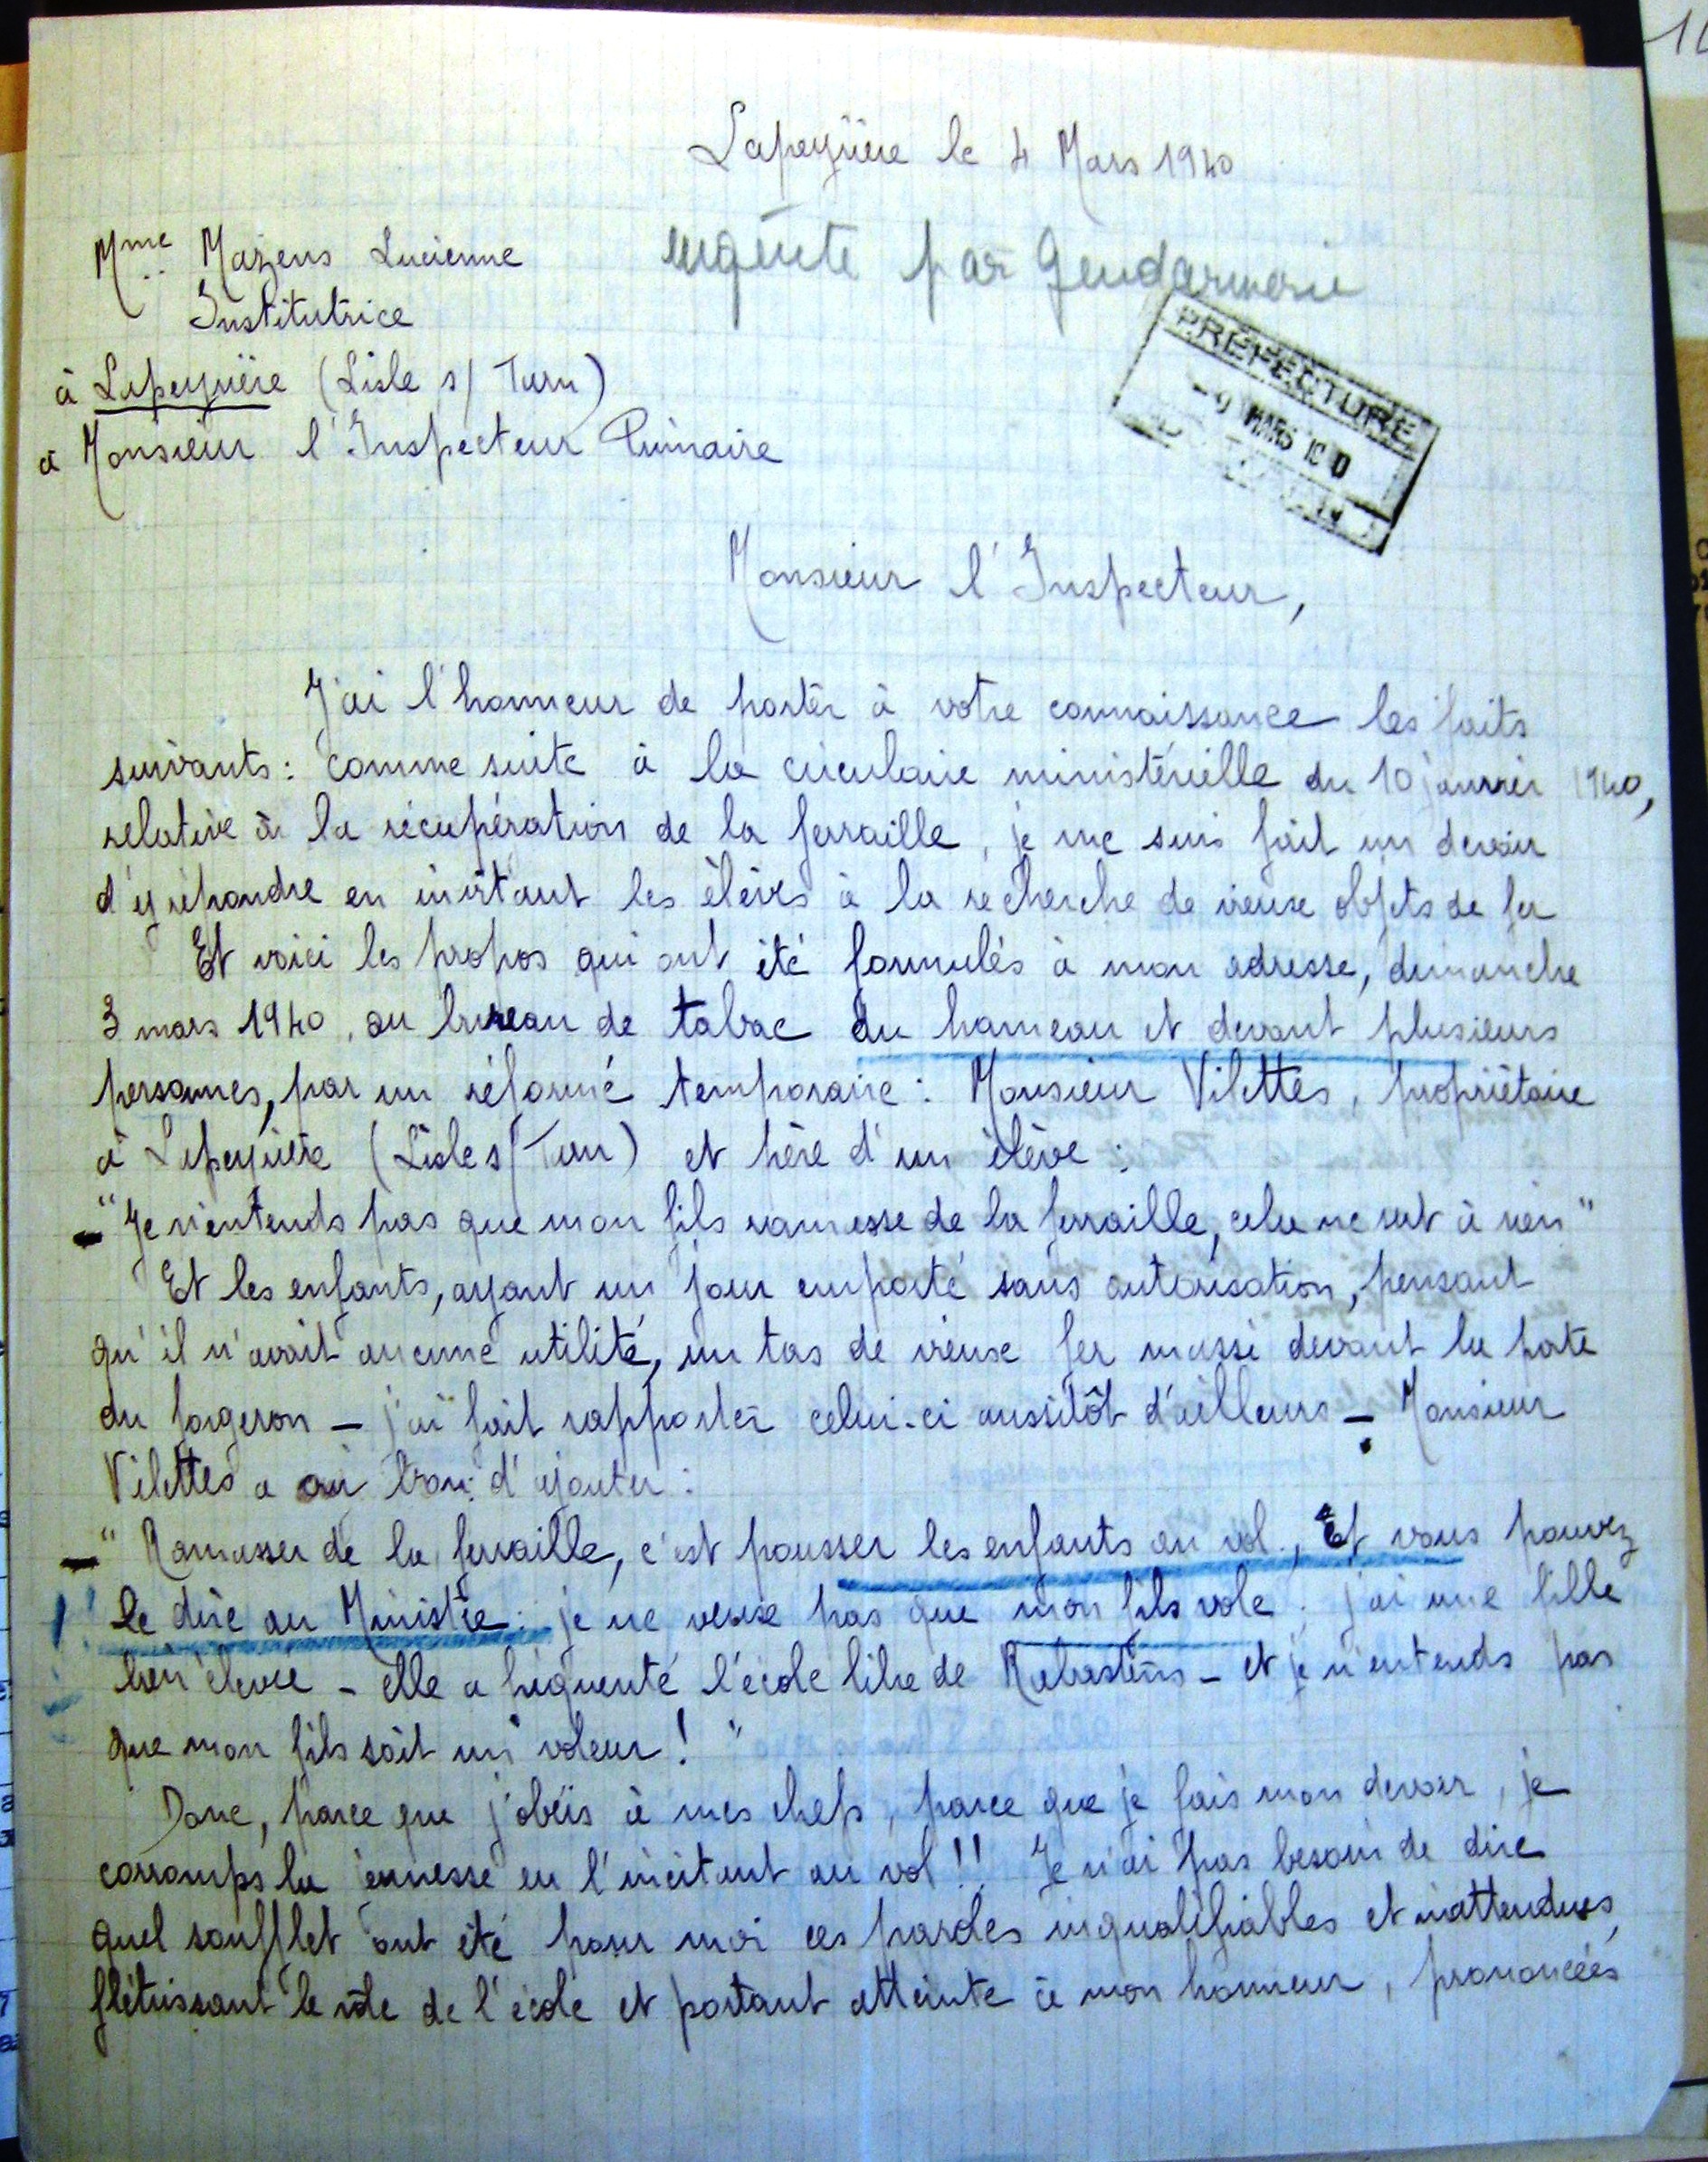 Lapeyrière le 4 Mars 1940
Mme Mazens Lucienne
enquête par Gendarmerie
Institutrice
à Lapeyrière (Lisle s/ Tarn)
à Monsieur l'Inspecteur Primaire
PRÉFECTURE
-9 MARS
Monsieur l'Inspecteur,
J'ai l'honneur de porter à votre connaissance les faits
suivants : comme suite à la circulaire ministérielle du 10 janvier 1940,
relative à la récupération de la ferraille, je me suis fait un devoir
d'y répondre en invitant les élèves à la recherche de vieux objets de fer
Et voici les propos qui ont été formulés à mon adresse, dimanche
3 mars 1940, au bureau de tabac du hameau et devant plusieurs
personnes, par un réformé temporaire : Monsieur Vilettes, propriétaire
à Lapeyrière (Lisle s/ Tarn) et père d'un élève :
- "Je n'entends pas que mon fils ramasse de la ferraille, cela ne sert à rien"
Et les enfants, ayant un jour emporté sans autorisation, pensant
qu'il n'avait aucune utilité, un tas de vieux fer massé devant la porte
du forgeron - j'ai fait rapporter celui-ci aussitôt d'ailleurs - Monsieur
Vilettes a cru bon d'ajouter :
- "Ramasser de la ferraille, c'est pousser les enfants au vol, Et vous pouvez
le dire au Ministre : je ne veux pas que mon fils vole ; j'ai une fille
bien élevée - elle a fréquenté l'école libre de Rabastens - et je n'entends pas
que mon fils soit un voleur ! "
Donc, parce que j'obéis à mes chefs, parce que je fais mon devoir, je
corromps la jeunesse en l'incitant au vol !! Je n'ai pas besoin de dire
quel soufflet ont été pour moi ces paroles inqualifiables et inattendues,
flétrissant le rôle de l'école et portant atteinte à mon honneur, prononcées